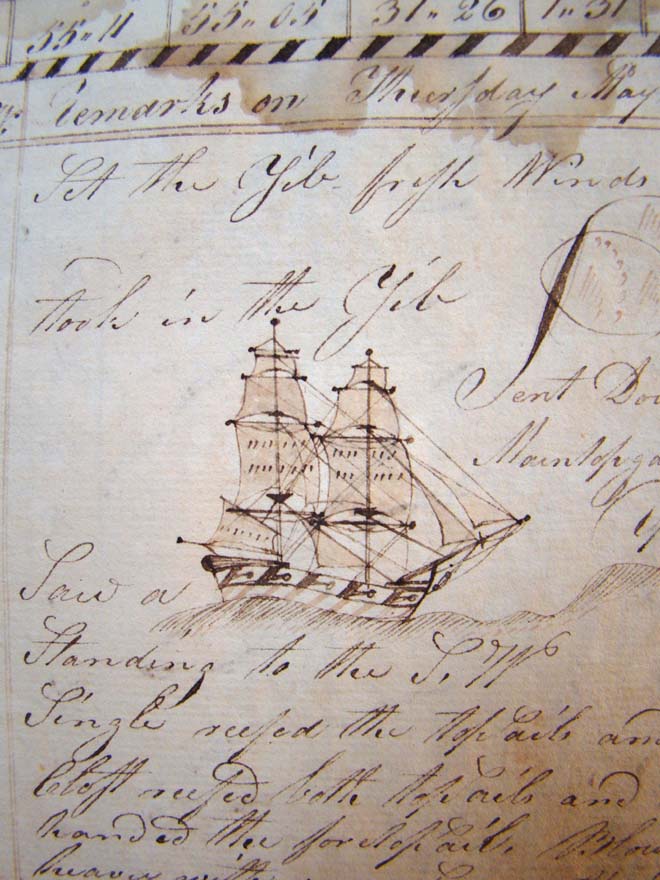 55" 11 55" 05 31" 26 1" 31
Remarks on Thursday May
Set the Yib fresh Winds
took in the Yib
Sent Do
Maintopga
Saw a
Standing to the S.W
Single reefed the topsails and
Close reefed both topsails and
handed the foretopsail. Blow
heavy with